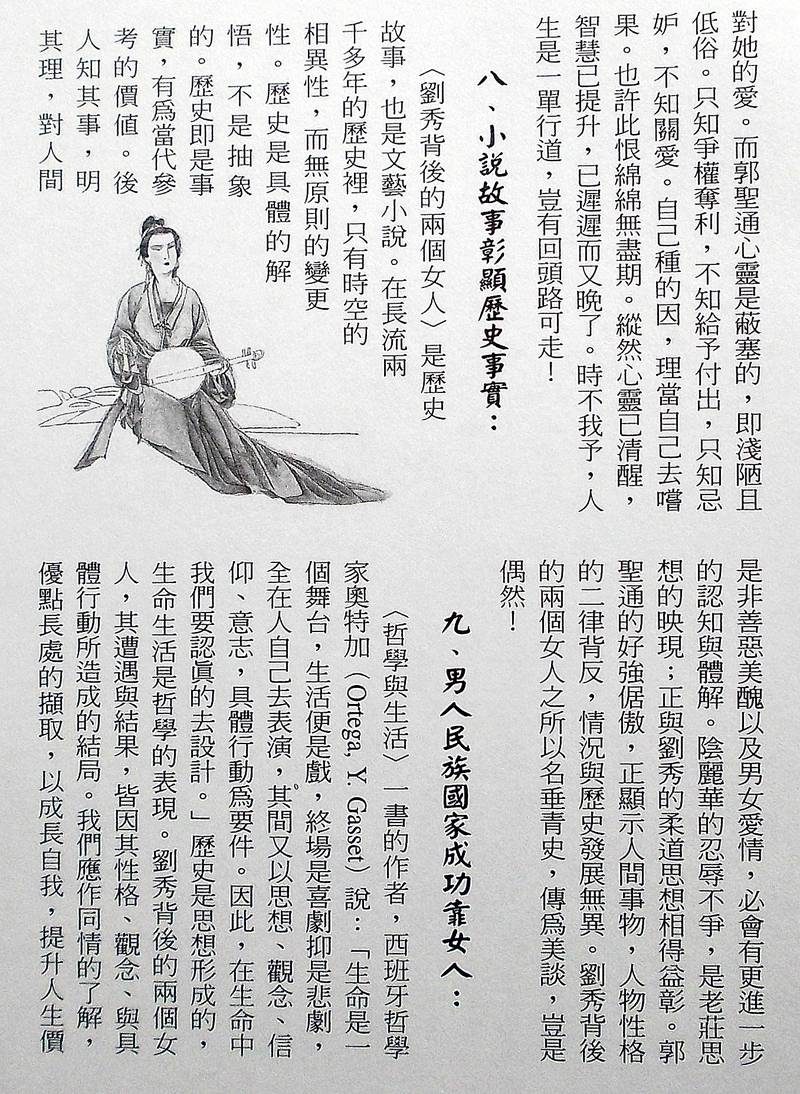 對她的愛。而郭聖通心靈是蔽塞的，即淺陋且
低俗。只知爭權奪利，不知給予付出，只知忌
妒，不知關愛。自己種的因，理當自己去嚐
果。也許此恨綿綿無盡期。縱然心靈已清醒，
智慧已提升，已遲遲而又晚了。時不我予，人
生是一單行道，豈有回頭路可走！
八、小說故事彰顯歷史事實：
〈劉秀背後的兩個女人〉是歷史
故事，也是文藝小說。在長流兩
千多年的歷史裡，只有時空的
相異性，而無原則的變更
性。歷史是具體的解
悟，不是抽象
的。歷史即是事
實，有為當代參
考的價值。後
人知其事，明
其理，對人間
是非善惡美醜以及男女愛情，必會有更進一步
的認知與體解。陰麗華的忍辱不爭，是老莊思
想的映現；正與劉秀的柔道思想相得益彰。郭
聖通的好強倨傲，正顯示人間事物，人物性格
的二律背反，情況與歷史發展無異。劉秀背後
的兩個女人之所以名垂青史，傳為美談，豈是
偶然！
九、男人民族國家成功靠女人：
〈哲學與生活〉一書的作者，西班牙哲學
家奧特加（Ortega, Y. Gasset）說：「生命是一
個舞台，生活便是戲，終場是喜劇抑是悲劇，
全在人自己去表演，其間又以思想、觀念、信
仰、意志，具體行動為要件。因此，在生命中
我們要認真的去設計。」歷史是思想形成的，
生命生活是哲學的表現。劉秀背後的兩個女
人，其遭遇與結果，皆因其性格、觀念、與具
體行動所造成的結局。我們應作同情的了解，
優點長處的擷取，以成長自我，提升人生價